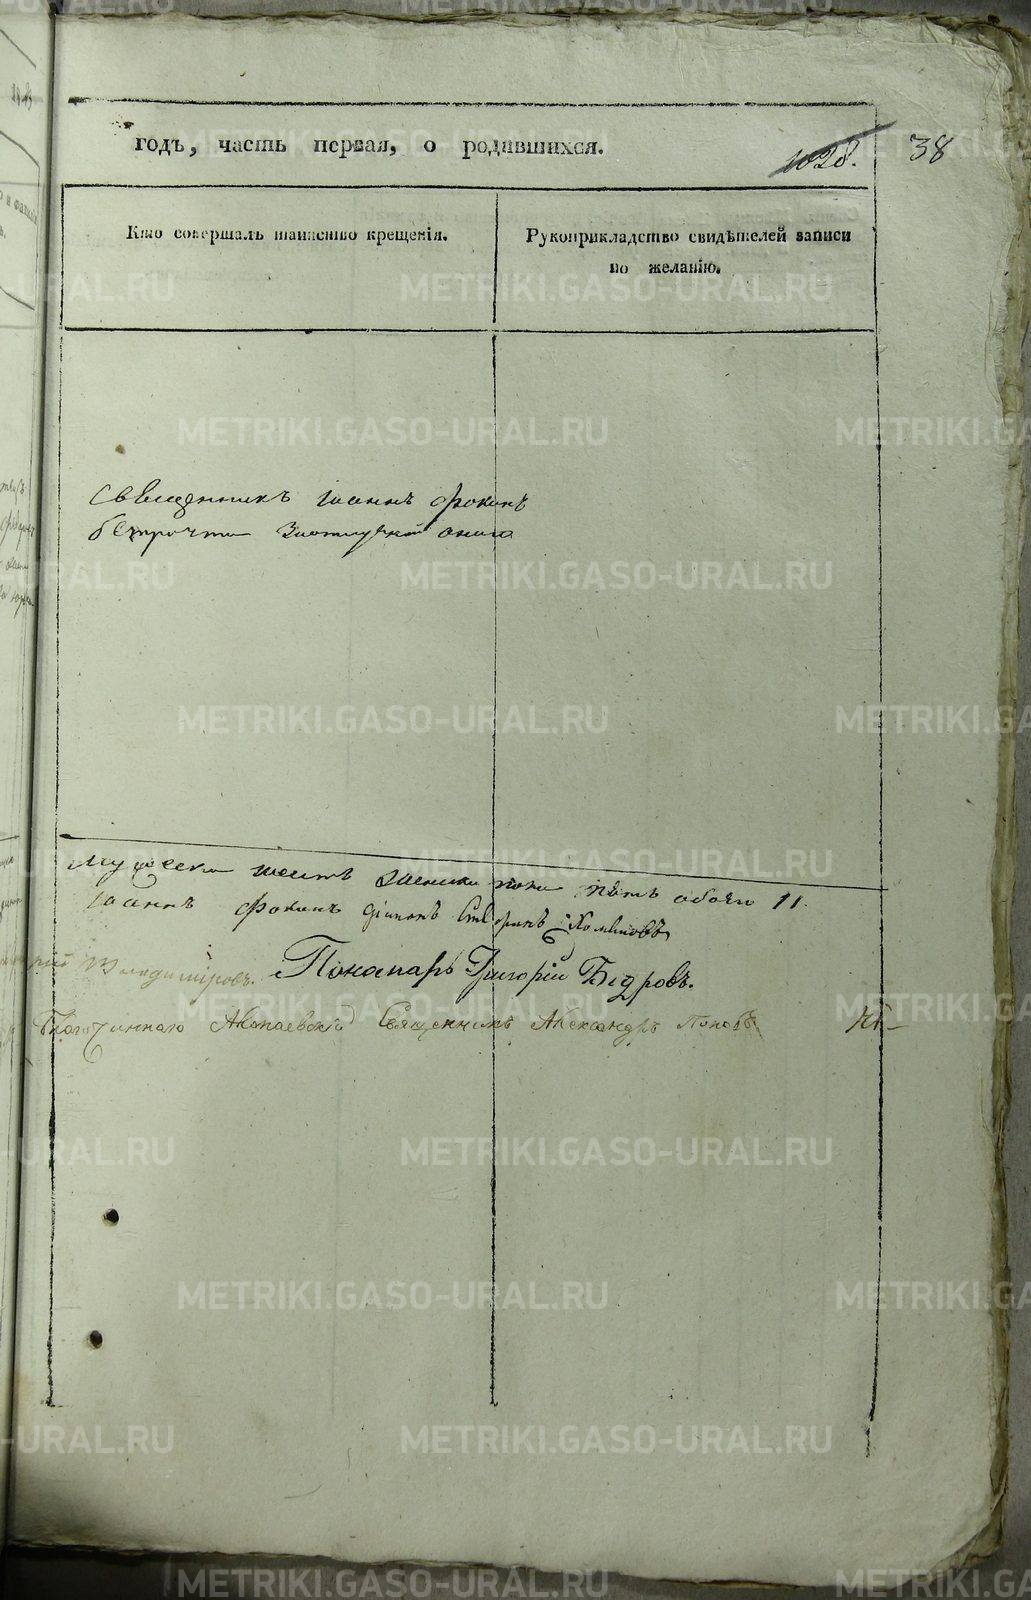 годъ, часть первая, о родившихся.
1028.
38
Кто совершалъ таинство крещенія.
Рукоприкладство свидѣтелей записи
по желанію.
Священникъ Іоаннъ Фокинъ
безпрочти
Мужеска шесть женска пола пять обоего 11.
Іоаннъ Фокинъ діаконъ
Владиміровъ. Понамарь Григорій Бѣдровъ.
Благочиннаго Священникъ Александръ Поповъ
METRIKI.GASO-URAL.RU